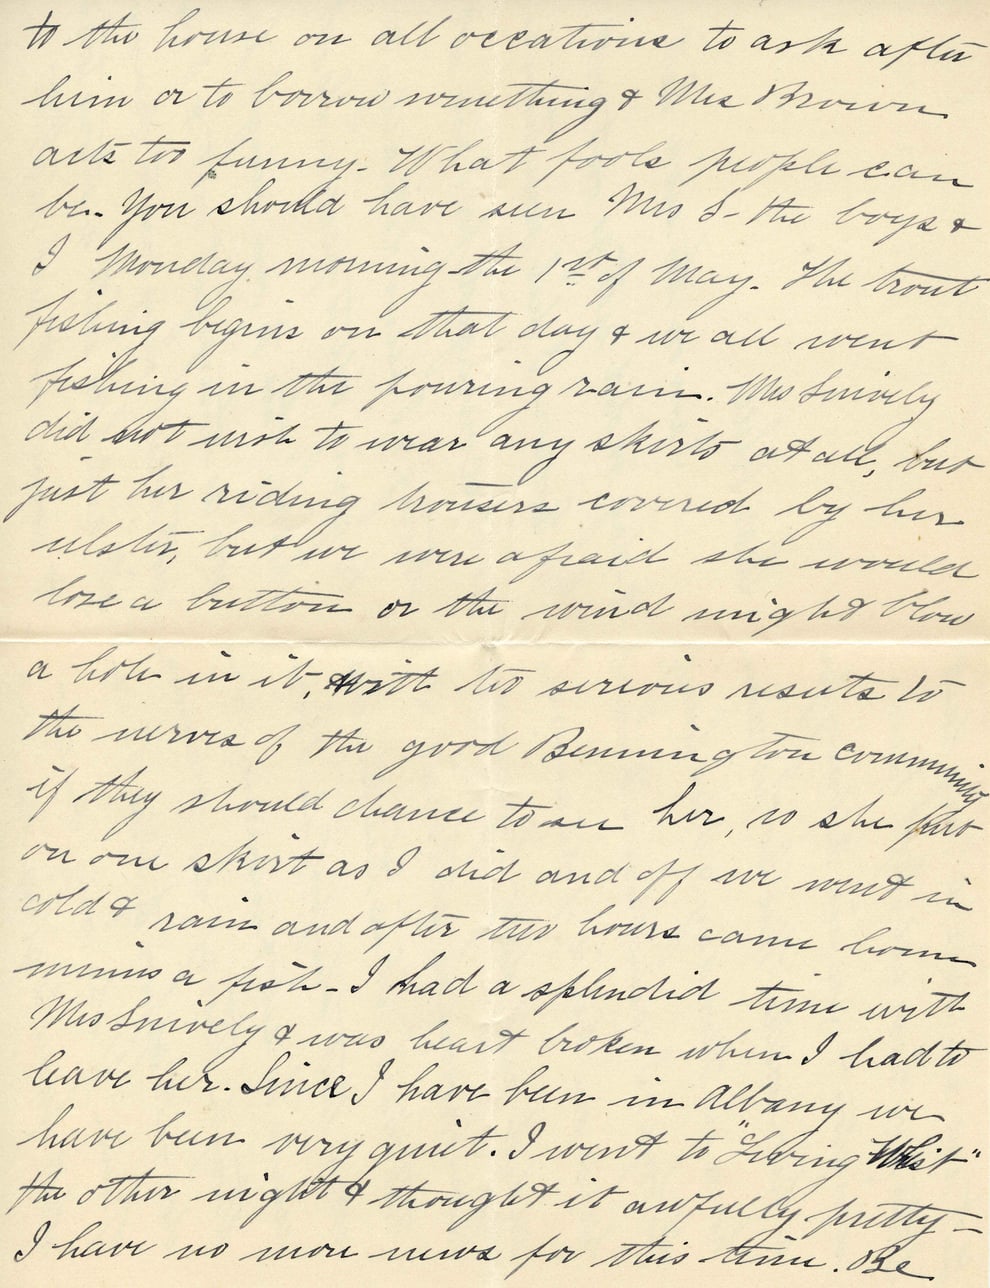 to the house on all occations to ask after
him or to borrow something & Mrs Brown
acts too funny. What fools people can
be. You should have seen Mrs S- the boys &
I Monday morning the 1st of May. The trout
fishing begins on that day & we all went
fishing in the pouring rain. Mrs Snively
did not wish to wear any skirts at all, but
just her riding trousers covered by her
ulster, but we were afraid she would
lose a button or the wind might blow
a hole in it, with too serious results to
the nerves of the good Bennington community
if they should chance to see her, so she put
on one skirt as I did and off we went in
cold & rain and after two hours came home
minus a fish - I had a splendid time with
Mrs Snively & was heart broken when I had to
leave her. Since I have been in Albany we
have been very quiet. I went to "Living Whist"
the other night & thought it awfully pretty -
I have no more news for this time. Be